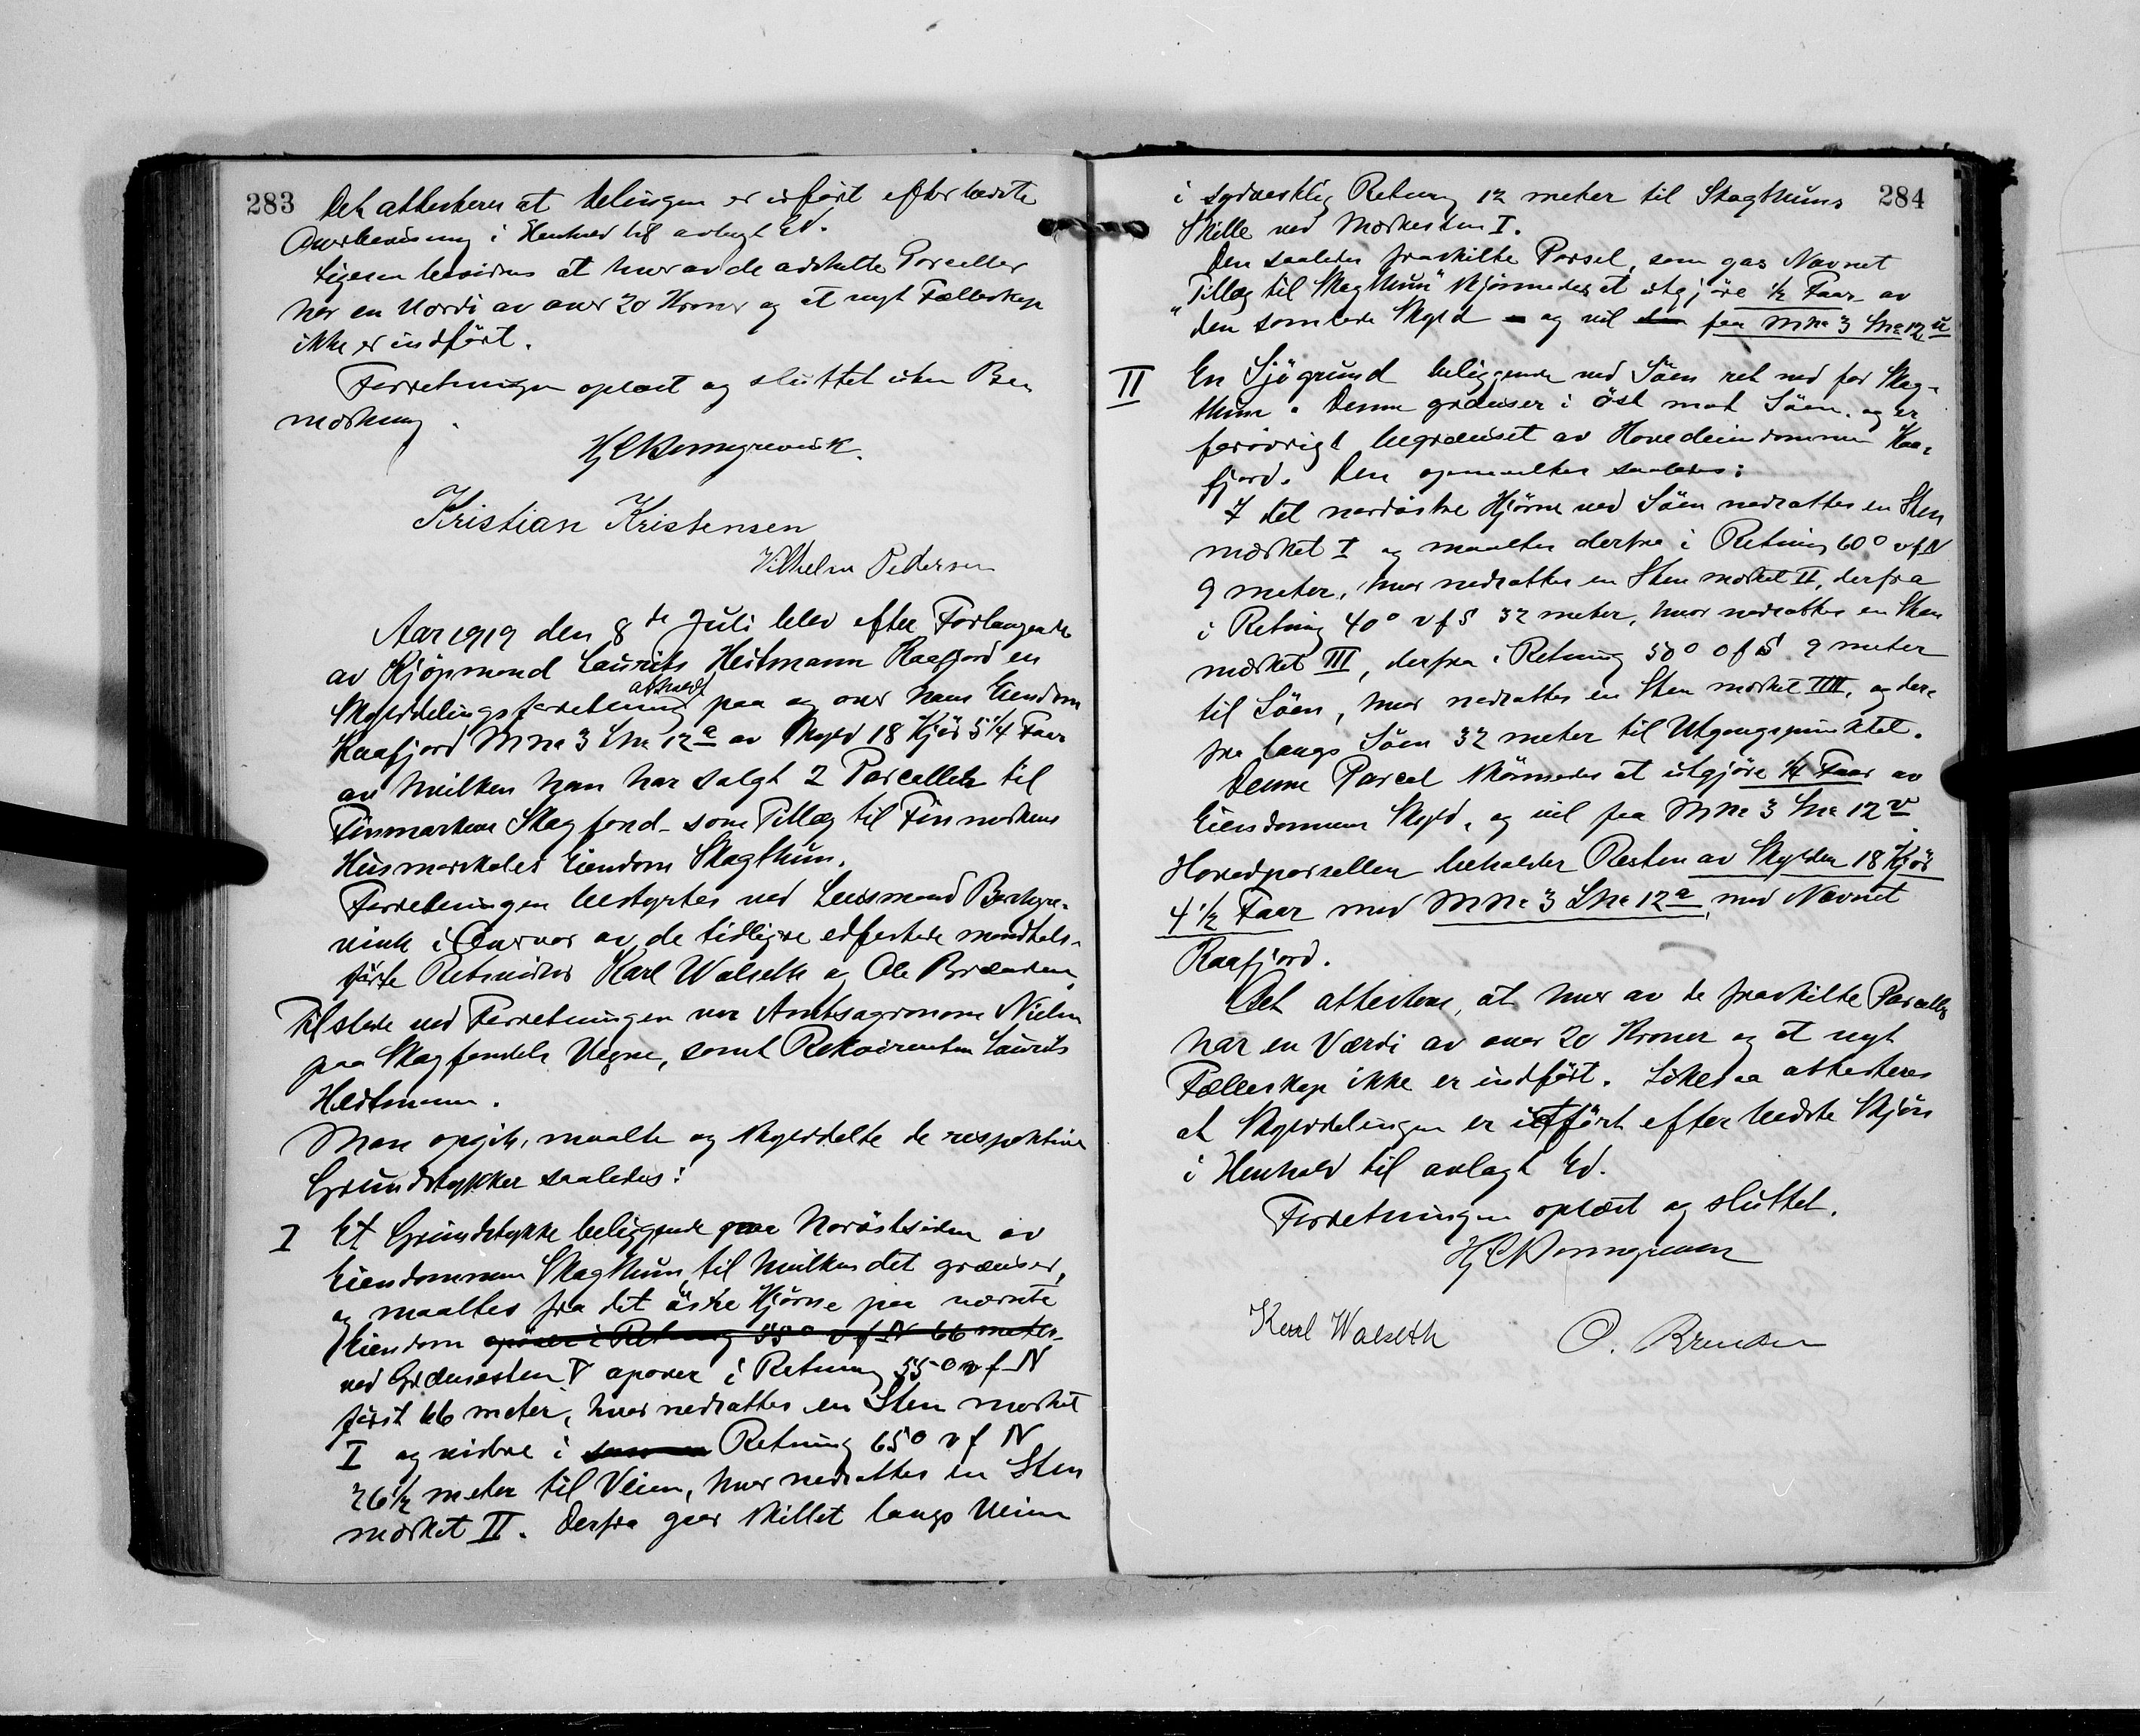 283
Det attesteres at Delingen er utført efter bedste
Overbevisning i Henhold til avlagt Ed.
Ligesaa bevidnes at hver av de adskilte Parceller
har en Værdi av over 20 Kroner og at nyt Fælleskap
ikke er indført.
Forretningen oplæst og sluttet uten Be-
mærkning.
Kristian Kristensen
Vilhelm Pedersen
Aar 1919 den 8de Juli blev efter Forlangende
av Kjøpmand Laurits Heitmann Kaafjord en
Skylddelingsforretning avholdt paa og over hans Eiendom
Kaafjord M No 3 L No 12a av Skyld 18 Kjør 5 1/4 Faar
av hvilken han har solgt 2 Parceller til
Finmarkens Skogfond som Tillæg til Finmarkens
Eiendom Skogthun.
Forretningen bestyrtes ved Lensmand
i Overvær av de tidligere edfæstede mandtals-
førte Retsvidner Karl Walseth og Ole Brænden.
Tilstede ved Forretningen var Amtsagronom Nielsen
paa Skogfondets Vegne, samt Rekvirenten Laurits
Heitmann.
Man opgik, maalte og skylddelte de respektive
Grundstykker saaledes:
I Et Grundstykke beliggende paa Nordøstsiden av
Eiendommen Skogthun, til hvilken det grænser,
og maaltes fra det østre Hjørne paa nævnte
Eiendom opover i Retning 55° v f N 66 meter
ved Grænsesten V opover i Retning 55° v f N
først 66 meter, hvor nedsattes en Sten mærket
I og videre i samme Retning 65° v f N
26 1/2 meter til Veien, hvor nedsattes en Sten
mærket II. Derfra gaar Skillet langs Veien
284
i sydvestlig Retning 12 meter til Skogthuns
Skille ved Mærkesten I.
Den saaledes fraskilte Parsel, som gas Navnet
"Tillæg til Skogthun" skjønnedes at utgjøre 1/2 Faar av
den samlede Skyld og vil faa M No 3 L No 12 u
II En Sjøgrund beliggende ved Søen ret ned for Skog-
thun. Denne grænser i Øst mot Søen og er
forøvrigt begrænset av Hovedeiendommen Kaa-
fjord. Den opmaaltes saaledes:
I det nordøstre Hjørne ved Søen nedsattes en Sten
mærket I og maaltes derfra i Retning 60° v f N
9 meter, hvor nedsattes en Sten mærket II, derfra
i Retning 40° v f S 32 meter, hvor nedsattes en Sten
mærket III, derfra i Retning 50° o f S 9 meter
til Søen, hvor nedsattes en Sten mærket IIII, og der-
fra langs Søen 32 meter til Utgangspunktet.
Denne Parcel skjønnedes at utgjøre 1/4 Faar av
Eiendommens Skyld, og vil faa M No 3 L No 12 v
Hovedparsellen beholder Resten av Skylden 18 Kjør
4 1/2 Faar med M No 3 L No 12a, med Navnet
Kaafjord.
Det attesteres, at hver av de fraskilte Parceller
har en Værdi av over 20 Kroner og at nyt
Fælleskap ikke er indført. Likesaa attesteres
at Skylddelingen er utført efter bedste Skjøn
i Henhold til avlagt Ed.
Forretningen oplæst og sluttet.
Karl Walseth O. Brænden